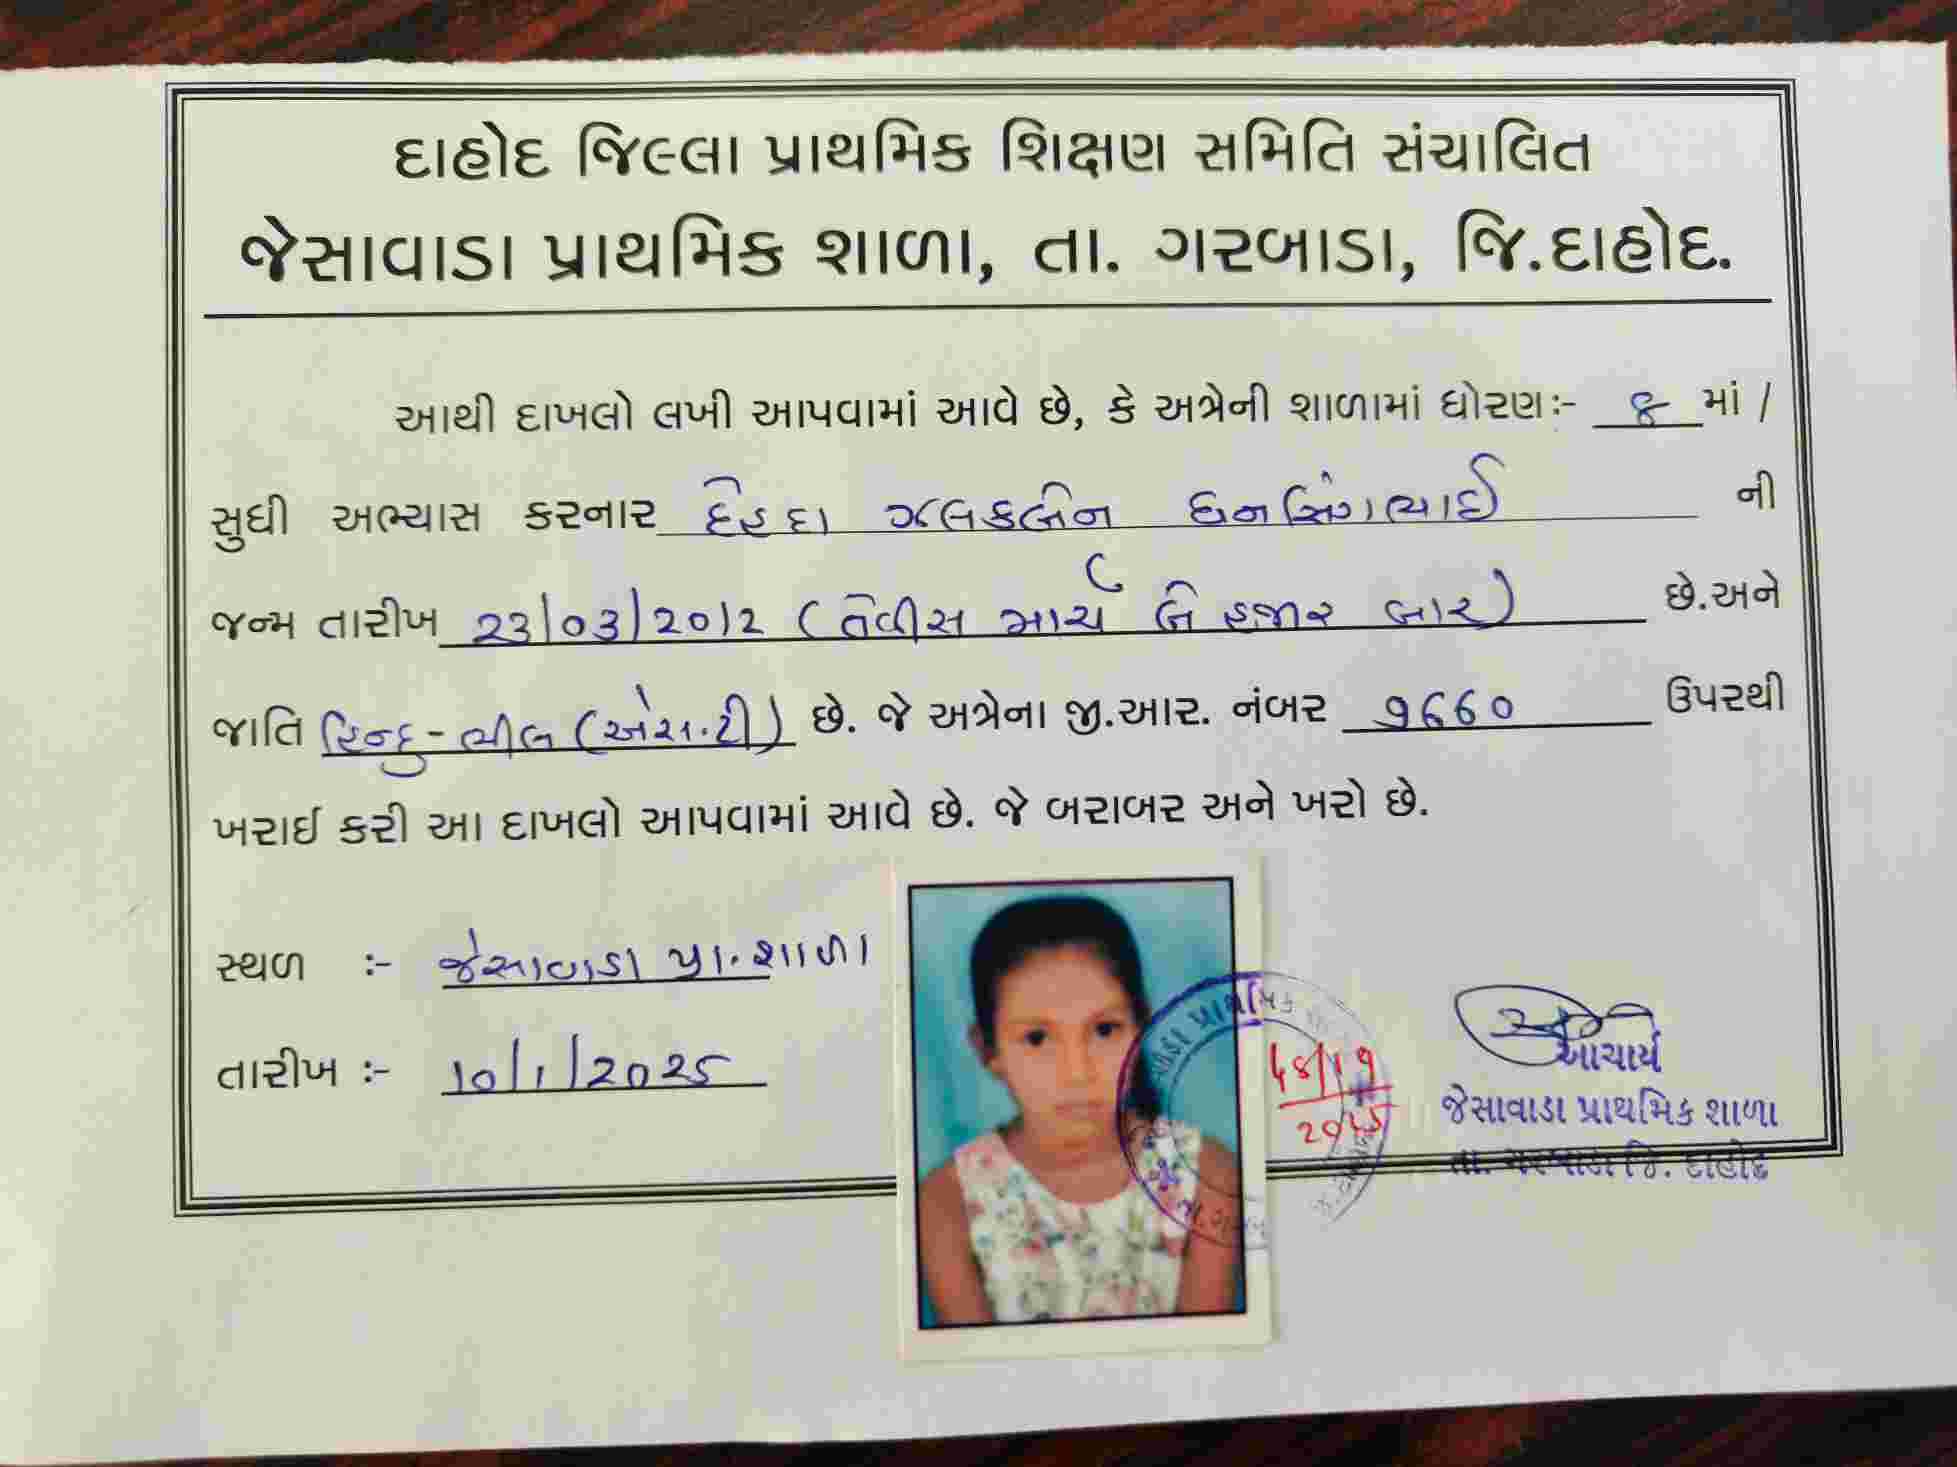 દાહોદ જિલ્લા પ્રાથમિક શિક્ષણ સમિતિ સંચાલિત
જેસાવાડા પ્રાથમિક શાળા, તા. ગરબાડા, જિ.દાહોદ.
આથી દાખલો લખી આપવામાં આવે છે, કે અત્રેની શાળામાં ધોરણઃ- ૪ માં /
સુધી અભ્યાસ કરનાર દેહદા ધનસિંગભાઈ ની
જન્મ તારીખ 23/03/2012 (તેવીસ માર્ચ બે હજાર બાર) છે.અને
જાતિ હિન્દુ-ભીલ (એસ.ટી) છે. જે અત્રેના જી.આર. નંબર ૧660 ઉપરથી
ખરાઈ કરી આ દાખલો આપવામાં આવે છે. જે બરાબર અને ખરો છે.
સ્થળ ઃ- જેસાવાડા પ્રા.શાળા
તારીખ ઃ- 10/1/2025
આચાર્ય
જેસાવાડા પ્રાથમિક શાળા
તા. ગરબાડા જિ. દાહોદ